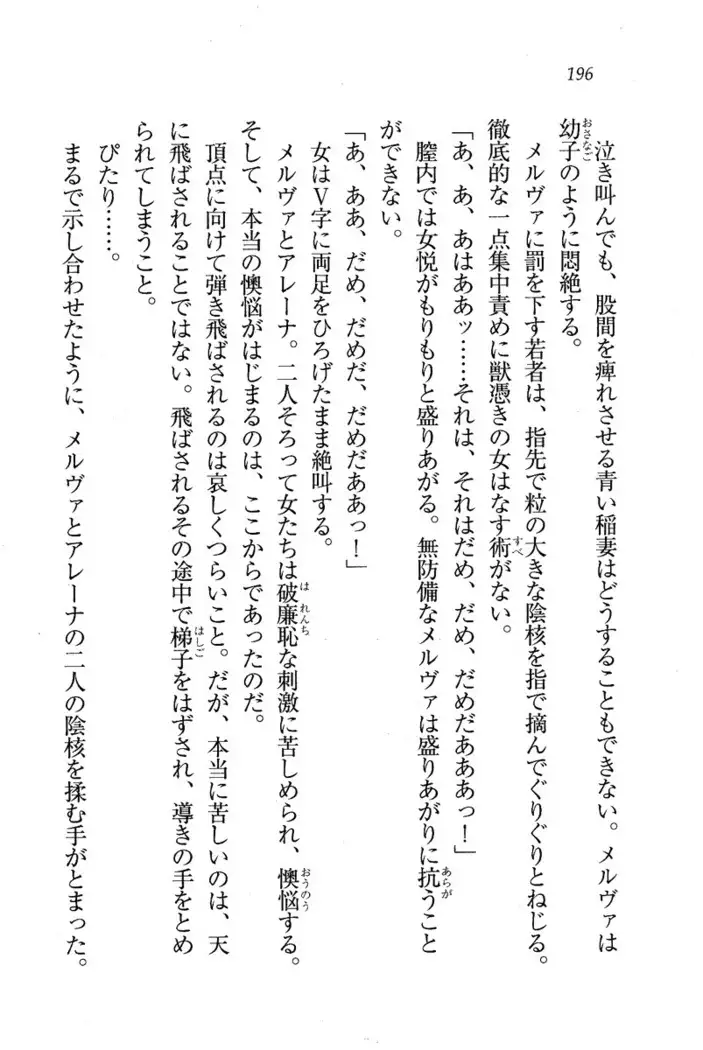 196
泣き叫んでも、股間を痺れさせる青い稲妻はどうすることもできない。メルヴァは
幼子のように悶絶する。
メルヴァに罰を下す若者は、指先で粒の大きな陰核を指で摘んでぐりぐりとねじる。
徹底的な一点集中責めに獣憑きの女はなす術がない。
「あ、あ、あはああッ……それは、それはだめ、だめ、だめだあああっ！」
膣内では女悦がもりもりと盛りあがる。無防備なメルヴァは盛りあがりに抗うこと
ができない。
「あ、ああ、だめ、だめだ、だめだああっ！」
女はＶ字に両足をひろげたまま絶叫する。
メルヴァとアレーナ。二人そろって女たちは破廉恥な刺激に苦しめられ、懊悩する。
そして、本当の懊悩がはじまるのは、ここからであったのだ。
頂点に向けて弾き飛ばされるのは哀しくつらいこと。だが、本当に苦しいのは、天
に飛ばされることではない。飛ばされるその途中で梯子をはずされ、導きの手をとめ
られてしまうこと。
ぴたり……。
まるで示し合わせたように、メルヴァとアレーナの二人の陰核を揉む手がとまった。